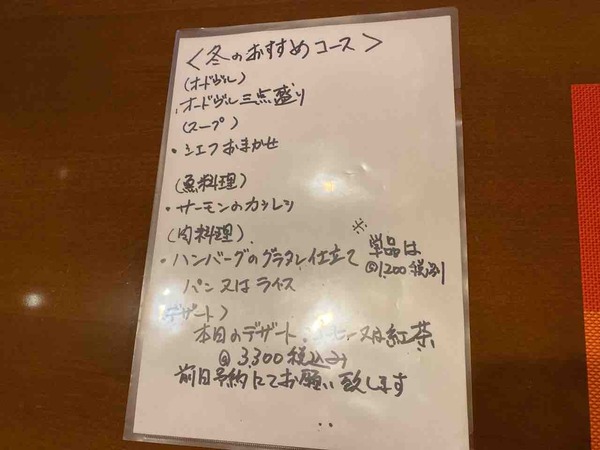 <冬のおすすめコース>
(オードヴル)
・オードヴル三点盛り
(スープ)
・シェフおまかせ
(魚料理)
・サーモンのカツレツ
(肉料理)
・ハンバーグのグラタン仕立て
パン又はライス
※
単品は
@1,200税別
デザート)
本日のデザート、 又は紅茶
@3,300税込み
前日予約にてお願い致します